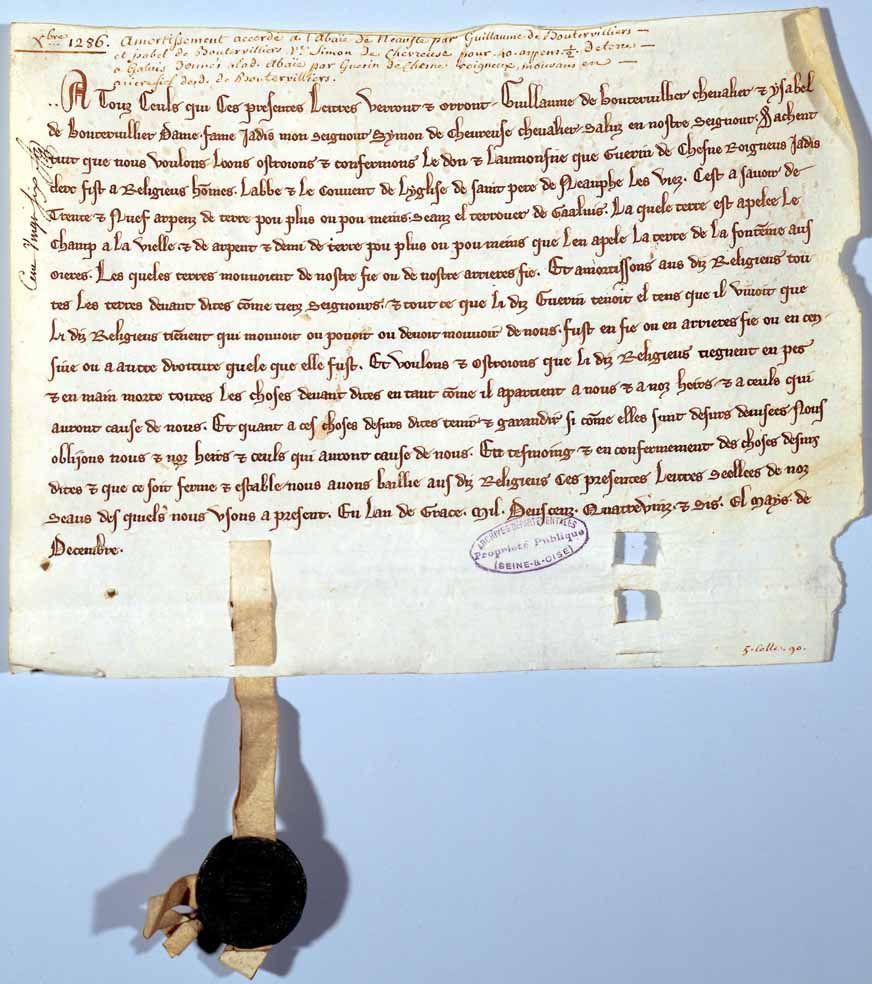 Xbre 1286. Amortissement accordé a l'Abaie de Neauffle par Guillaume de Boutervilliers
et isabel de Boutervilliers Simon de Chevreuse pour 40 arpens ½ de terre
a Galuis donnés alad. Abaie par Guerin de Chesne Roigneux, mouvans en
arierefief desd. de Boutervilliers.
A Touz Ceuls qui Ces presentes Lettres verront & orront. Guillaume de boutervillier chevalier & ysabel
de boutervillier Dame fame Jadis mon seignour Symon de cheureuse chevalier. Saluz en nostre seignour. Sachent
tuit que nous voulons Loons ostroions & confermons Le don & Laumosne que Guerin de Chesne Roigneus Jadis
clerc fist a Religieus hōmes. Labbe & le Couuent de Lyglise de saint pere de Neauphe Les viez. Cest a sauoir de
Trente & Nuef arpenz de terre pou plus ou pou meins. Seanz el terrouer de Gaaluis. La quele terre est apelee Le
Champ a la vielle. & de arpent & demi de terre pou plus ou pou meins que Len apele La terre de La fonteine aus
oieres. Les queles terres mouuoient de nostre fie ou de nostre arrieres fie. Et amortissons aus diz Religieus tou
tes Les terres deuant dites cōme tierz Seignours. & tout ce que Li diz Guerin tenoit el tens que il viuoit que
Li diz Religieus tienent qui mouuoit ou pouoit ou deuoit mouuoir de nous. fust en fie ou en arrieres fie ou en cen
siue ou a autre droiture quele que elle fust. Et voulons & Ostroions que Li diz Religieus tiegnent en pes
& en main morte toutes Les choses deuant dites en tant cōme il apartient a nous & a noz heirs & a ceuls qui
auront cause de nous. Et quant a ces choses desus dites tenir & garandir si cōme elles sunt desus deuisees Nous
oblijons nous & noz heirs & ceuls qui auront cause de nous. En tesmoing & en confermement des choses desus
dites & que ce soit ferme & estable nous auons baillie aus diz Religieus Ces presentes Lettres Seellees de noz
Seaus des quiels nous vsons a present. En Lan de Grace. Mil. Deuscenz. Quatrevinz. & Sis. El Moys de
Decembre.
ARCHIVES DEPARTEMENTALES
Propriété Publique
(SEINE-&-OISE)
90.